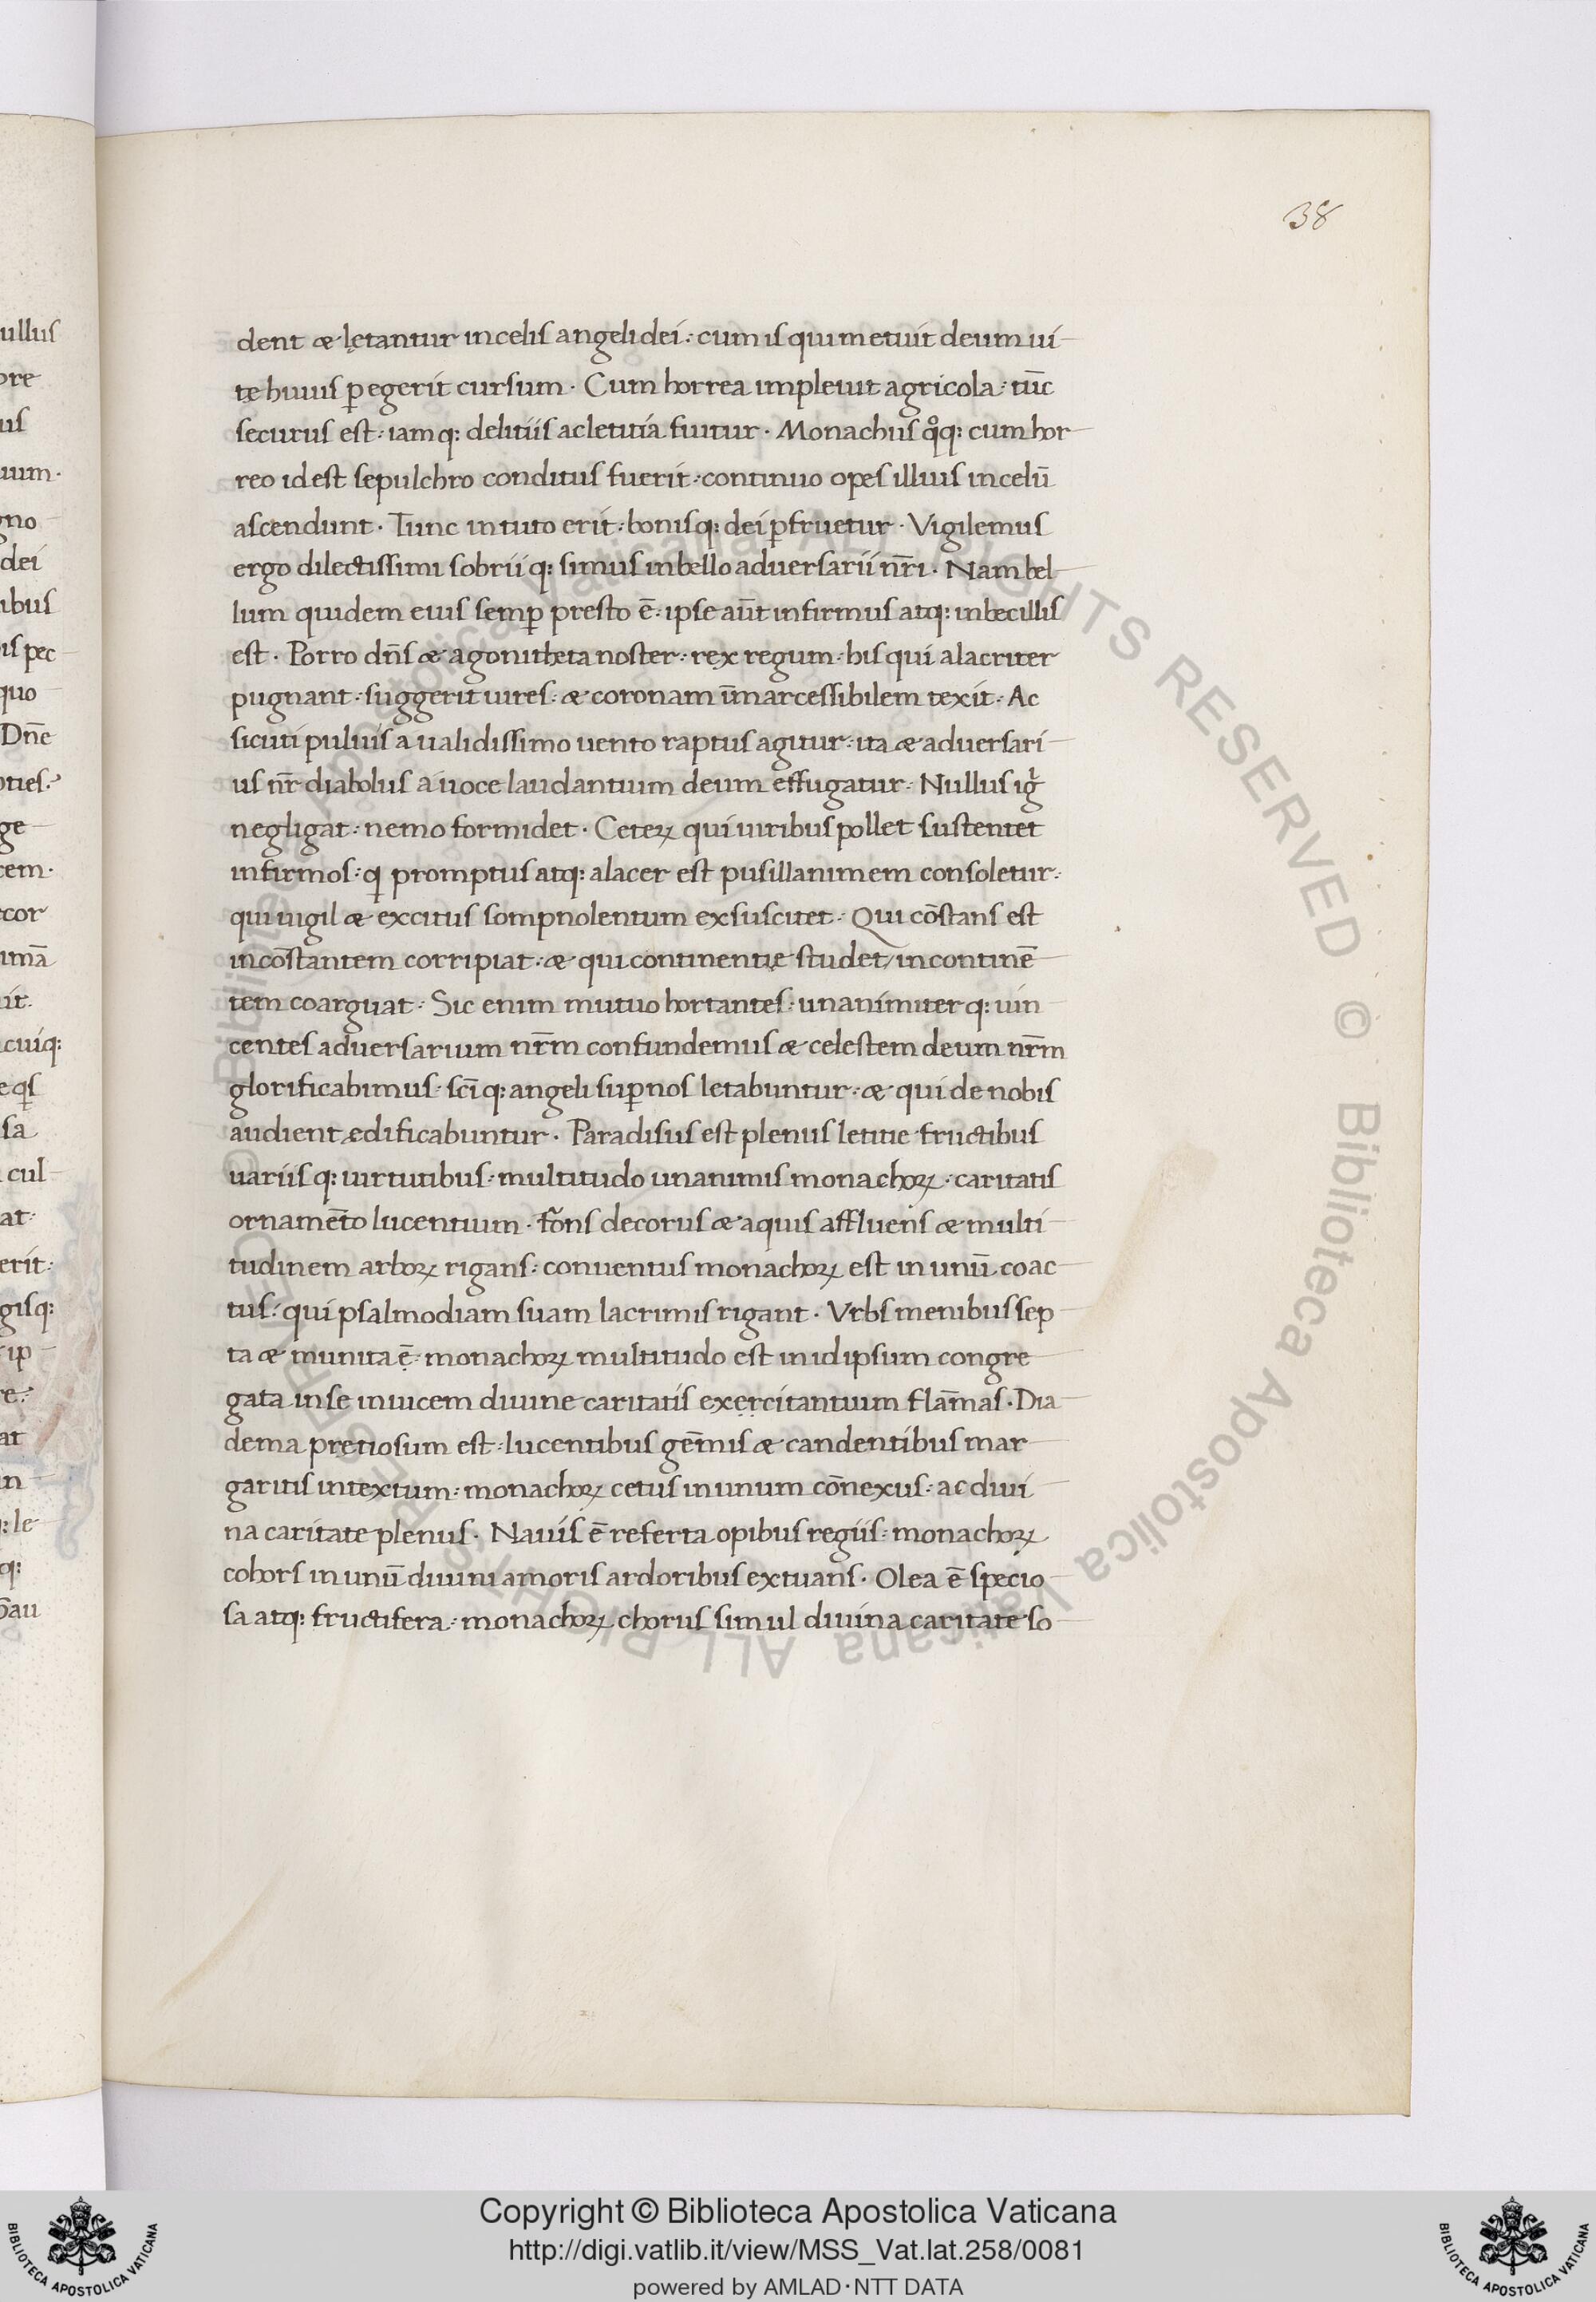 38
dent & lętantur in celis angeli dei: cum is qui metuit deum ui
tę huius ꝑegerit cursum · Cum horrea impleuit agricola: tūc
securus est: iamq: delitiis ac letitia fruitur · Monachus qͦq: cum hor
reo idest sepulchro conditus fuerit: continuo opes illius in celū
ascendunt · Tunc in tuto erit: bonisq: dei ꝑfruetur · Vigilemus
ergo dilectissimi sobriiq: simus in bello aduersarii nr̄i · Nam bel
lum quidem eius semꝑ presto ē: ipse aūt infirmus atq: inbecillis
est · Porro dn̄s & agonitheta noster: rex regum: his qui alacriter
pugnant: suggerit uires: & coronam īmarcessibilem texit · Ac
sicuti puluis a ualidissimo uento raptus agitur: ita & aduersari
us nr̄ diabolus a uoce laudantium deum effugatur · Nullus igr̄
negligat: nemo formidet · Ceteꝝ qui uiribus pollet sustentet
infirmos: qͥ promptus atq: alacer est pusillanimem consoletur:
qui uigil & excitus sompnolentum exsuscitet · Qui cōstans est
incōstantem corripiat: & qui continentię studet / incontinē
tem coarguat: Sic enim mutuo hortantes: unanimiterq: uin
centes aduersarium nr̄m confundemus & celestem deum nr̄m
glorificabimus: sc̄iq: angeli suꝑ nos letabuntur: & qui de nobis
audient ædificabuntur · Paradisus est plenus letitie fructibus
uariisq: uirtutibus: multitudo unanimis monachoꝝ: caritatis
ornamēto lucentium · fons decorus & aquis affluens & multi
tudinem arboꝝ rigans: conuentus monachoꝝ est in unū coac
tus: qui psalmodiam suam lacrimis rigant · Vrbs menibus sep
ta & munita ē: monachoꝝ multitudo est in idipsum congre
gata in se inuicem diuine caritatis exercitantium flām̄as · Dia
dema pretiosum est: lucentibus gēmis & candentibus mar
garitis intextum: monachoꝝ cetus in unum cōnexus: ac diui
na caritate plenus · Nauis ē referta opibus regiis: monachoꝝ
cohors in unū diuini amoris ardoribus extuans · Olea ē specio
sa atq: fructifera: monachoꝝ chorus simul diuina caritate so
Copyright © Biblioteca Apostolica Vaticana
http://digi.vatlib.it/view/MSS_Vat.lat.258/0081
powered by AMLAD·NTT DATA